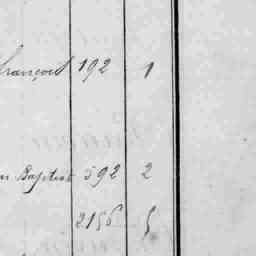 françois 192 1
n Baptist 592 2
2156 5